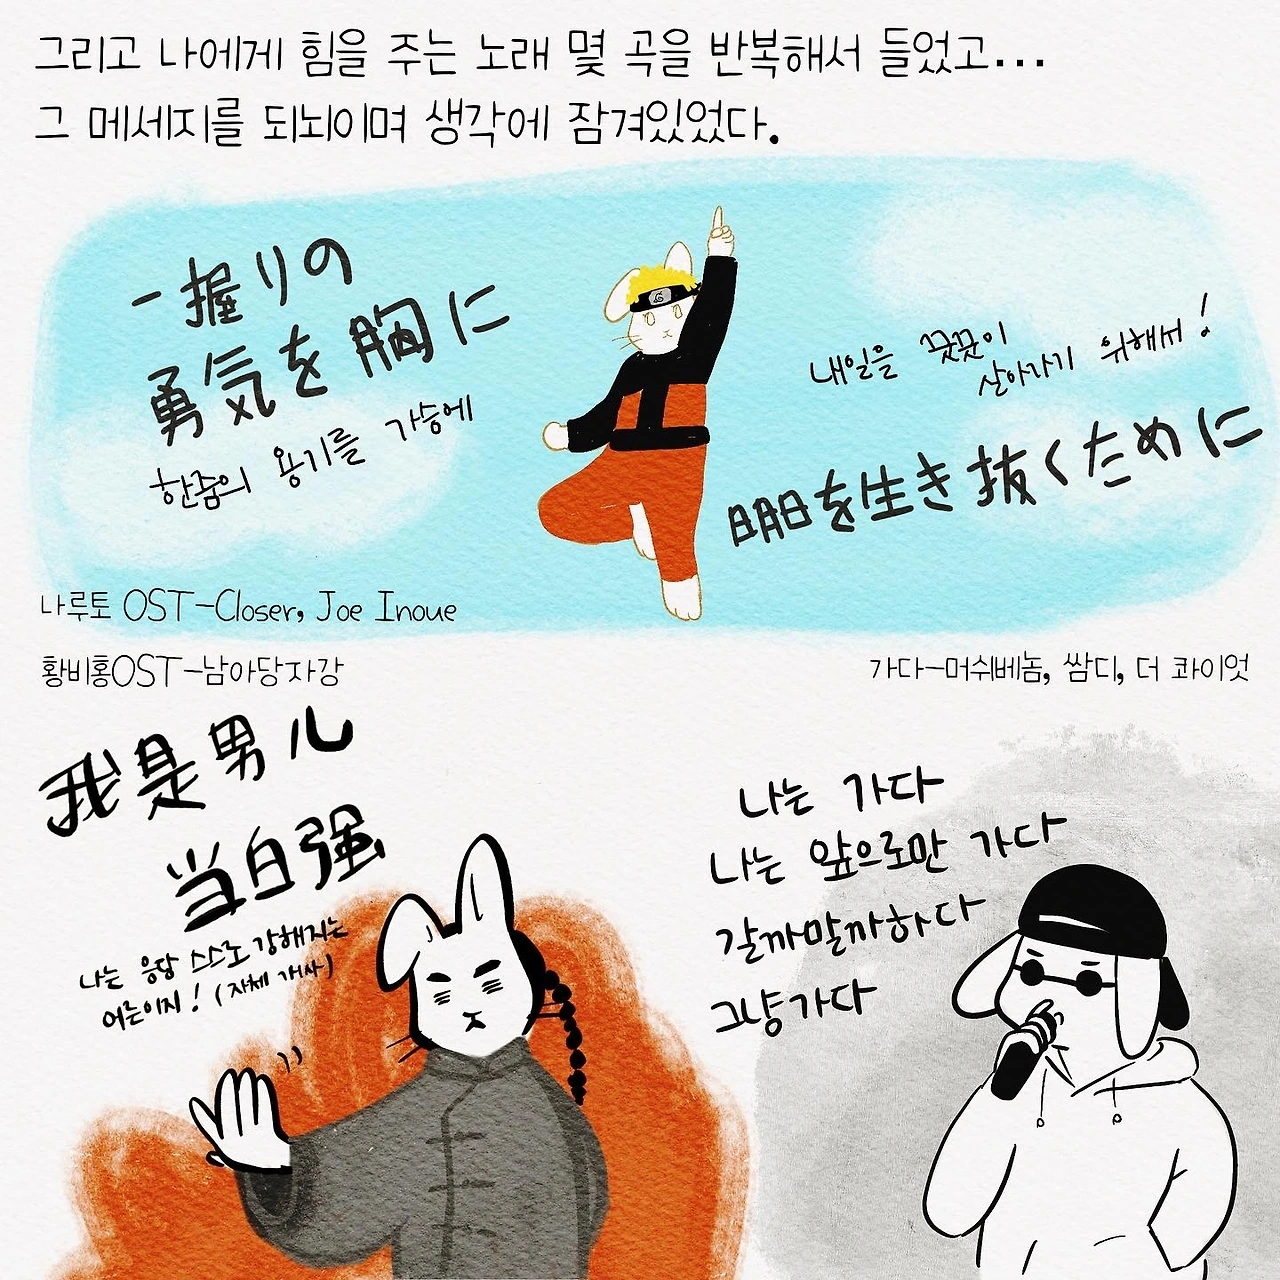 그리고 나에게 힘을 주는 노래 몇 곡을 반복해서 들었고...
그 메세지를 되뇌이며 생각에 잠겨있었다.
一握りの
勇気を胸に
한줌의 용기를 가슴에
내일을 꿋꿋이
살아가기 위해서!
明日を生き抜くために
나루토 OST-Closer, Joe Inoue
황비홍OST-남아당자강
我是男儿
当自强
나는 응당 스스로 강해지는
어른이지! (자체 개사)
가다-머쉬베놈, 쌈디, 더 콰이엇
나는 가다
나는 앞으로만 가다
갈까말까하다
그냥가다